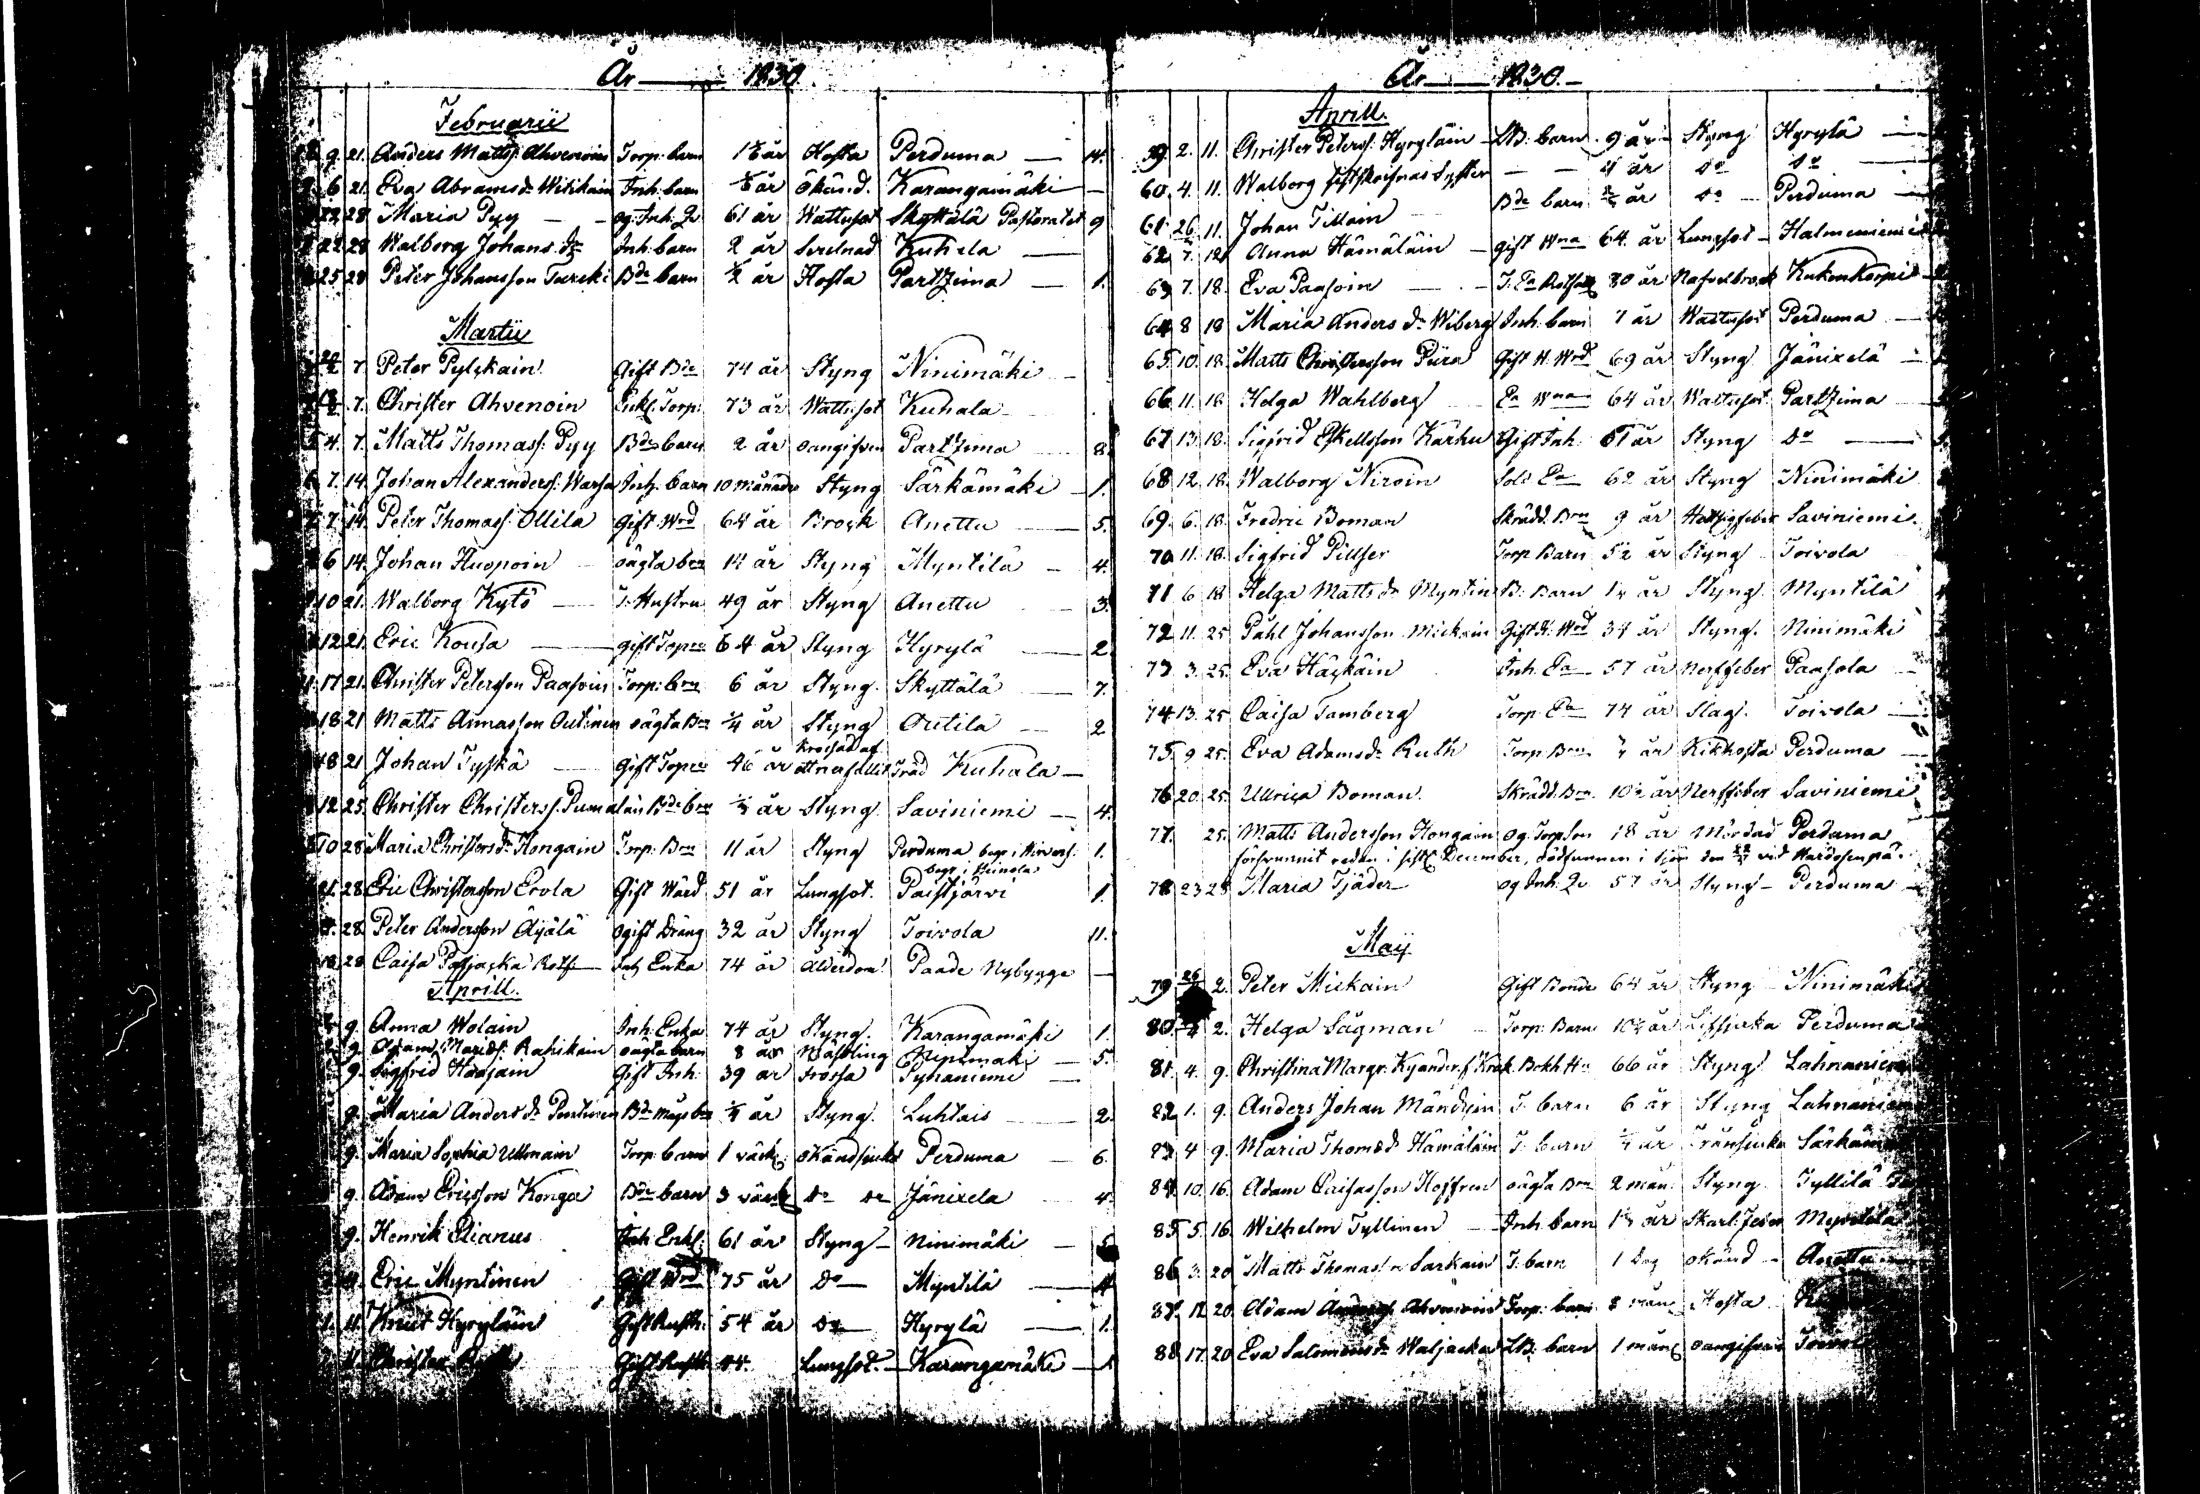 År — 1830.
Februarii
9. 21. Anders Matts: Ahvenoin Torp: barn 1½ år Hosta Perduma — 14.
6 21. Eva Abramsdr Witikain Inh. barn ½ år Okänd. Karangamäki —
22 28 Maria Pyy — og: Inh. Qv 61 år Wattusot Skyttälä Pastoratet 9
22 28 Walborg Johansdr Inh: barn 2 år Kuhala —
25 28 Peter Johansson Turcki Bde barn ¼ år Hosta Partzima — 1.
Martii
7. Peter Pylzkain Gift Bde 74 år Styng Ninimäki —
7. Christer Ahvenoin Enkl: Torp: 73 år Wattusot Kuhala
4. 7. Matts Thomass: Pyy Bde barn 2 år oangifven Partzima 8.
7. 14. Johan Alexanderss: Warsa Inh. barn 10 månader Styng Särkämäki — 1.
7. 14. Peter Thomass: Ollila Gift Wrd 64 år Brock Anettu — 5.
6 14. Johan Huopoin oägta brn 14 år Styng Myntilä — 4.
10 21. Walborg Kytö — I: Hustru 49 år Styng Anettu 3.
12 21. Eric Kousa — gift Torpre 64 år Styng Hyrylä — 2.
17 21. Christer Petersson Paasoin Torp: brn 6 år Styng. Skyttälä — 7.
18 21 Matts Annasson Outinen oägta Brn ¼ år Styng Outila — 2
18 21 Johan Tyskä — Gift Torpre 46 år Krossad af ett nerfallit Träd Kuhala —
12 25. Christer Christerss: Pumalain Bde brn ¼ år Styng Saviniemi — 4.
10 28 Maria Christersdr Hongain Torp: Brn 11 år Styng Perduma begr. i Hirvens: 1.
21. 28 Eric Christersson Ervla Gift Wärd 51 år Lungsot. Paistjärvi begr: i Heinola 1.
28 Peter Andersson Äyälä Ogift Dräng 32 år Styng Toivola 11.
28 Caisa Enka 74 år Ålderdom Paade Nybygge —
Aprill.
9. Anna Wolain Inh: Enka 74 år Styng. Karangamäki 1.
9. Adam Mariæs: Rahikain oägta barn 8 år Mässling Ninimäki — 5.
9. Sigfrid Haajain Gift Inh: 39 år Frossa Pyhäniemi —
9. Maria Andersdr Pentinen ¼ år Styng. Luhtais — 2.
9. Maria Sophia Ullmain Torp: barn 1 väck: okänd sjukd Perduma — 6.
9. Adam Ericsson Konga Bde barn 3 väck: do do Jänixelä 4.
9. Henrik Elianus Inh Enkl: 61 år Styng — Ninimäki — 5
11. Eric Myntinen Gift Wrd 75 år do — Myntilä — 4
1. 11. Knut Hyryläin Gift Rusth: 54 år do — Hyrylä — 1.
11. Christer Gift Rusth 44. Lungsot. — Karangamäki — 1
År — 1830. —
Aprill.
59 2. 11. Christer Peterss: Hyryläin LB: barn 9 år Styng Hyrylä —
60. 4. 11. Walborg Syster — — 4 år do do —
61. 26 11. Johan Tillain Bde barn ¾ år do — Perduma —
62 7. 12. Anna Hämäläin — gift Wna 64. år Lungsot — Halmeniemi
63 7. 18. Eva Paasoin — 80 år Kukonkorpi —
64 8 18 Maria Andersdr Wiberg Inh. barn 7 år Wattusot Perduma
65. 10. 18. Matts Christersson Piira Gift H. Wrd 69 år Styng Jänixelä —
66 11. 18. Helga Wahlberg Ea Wna 64 år Wattusot. Partzima
67 13. 18. Sigfrid Eskellsson Kärhu Gift Inh: 61 år Styng do —
68 12. 18. Walborg Niroin Sold Ea 62 år Styng Ninimäki
69. 6. 18. Fredric Boman Skrädd. Brn 9 år Hettzigfeber Saviniemi.
70 11. 18. Sigfrid Pillser Torp. Barn 5½ år Styng Toivola
71 6 18 Helga Mattsdr Myntin B: Barn 1¼ år Styng. Myntilä
72 11. 25 Påhl Johansson Mickain Gift H: Wrd 34 år Styng. Ninimäki
73 3. 25. Eva Häckäin Inh. Ea 57 år Nerffeber Paasola —
74 13. 25 Caisa Tamberg Torp. Ea 74 år Slag. Toivola —
75. 9 25. Eva Adamsdr Ruth Torp. Brn. ¼ år Kikhosta Perduma
76 20. 25. Ullrica Boman. Skrädd. Brn. 10½ år Nerffeber Saviniemi
77. 25. Matts Andersson Hongain og. Torp Son 18 år Mördad Perduma
försvunnit redan i sistl: December, dödfunnen i sjön den vid
78 23 25 Maria Tjäder og Inh: Qv 57 år Styng — Perduma —
Maij
79 26 2. Peter Mickain Gift Bonde 64 år Styng Ninimäki
80. 2. Helga Sågman Torp: Barn 10½ år Perduma
81. 4. 9. Christina Margr: Kyander, f Krok. Bokh. Hu 66 år Styng Lahnaniemi
82 1. 9. Anders Johan Mändyin I: barn 6 år Styng Lahnaniemi
83 4 9. Maria Thomsdr Hämäläin I: barn ¼ år Tränsiuka
84 10. 16. Adam Caisasson Hoffren oägta Brn 2 mån: Styng Tyllilä
85 5 16 Wilhelm Tyllinen — Inh. barn 1¼ år Skarl: Feber Myntilä
86 3. 20 Matts Thomass:n Sarkain I: barn 1 dag okänd — Anettu
87. 12 20 Adam Ahvenoin Torp: barn 8 mån: Hosta
88 17. 20 Eva Salomonsdr Waljacka LB: barn 1 mån: oangifven